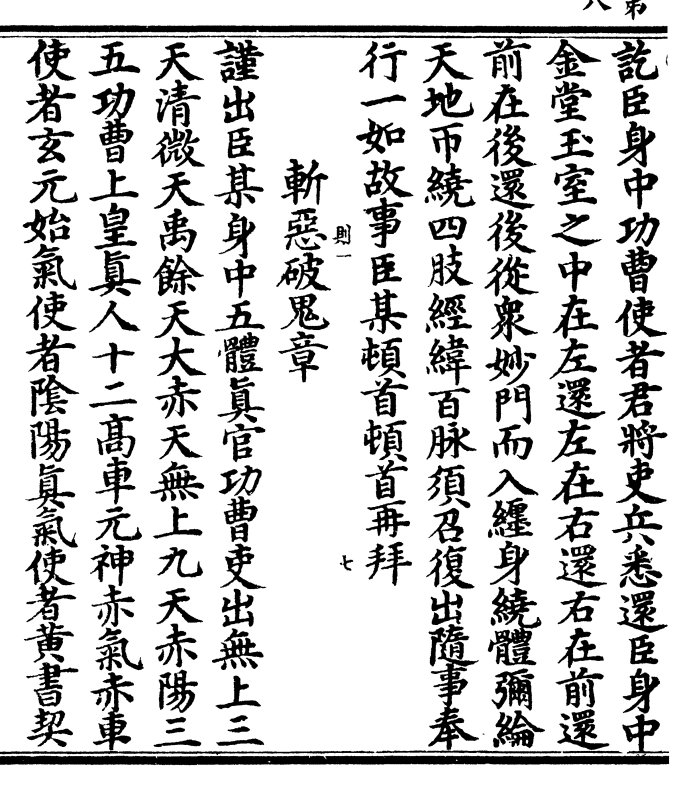 訖臣身中功曹使者君將吏兵悉還臣身中
金堂玉室之中在左還左在右還右在前還
前在後還後從衆妙門而入纏身繞體彌綸
天地帀繞四肢經緯百脉須召復出隨事奉
行一如故事臣某頓首頓首再拜
則一
七
斬惡破鬼章
謹出臣某身中五體眞官功曹吏出無上三
天清微天禹餘天大赤天無上九天赤陽三
五功曹上皇眞人十二高車元神赤氣赤車
使者玄元始氣使者陰陽眞氣使者黄書契